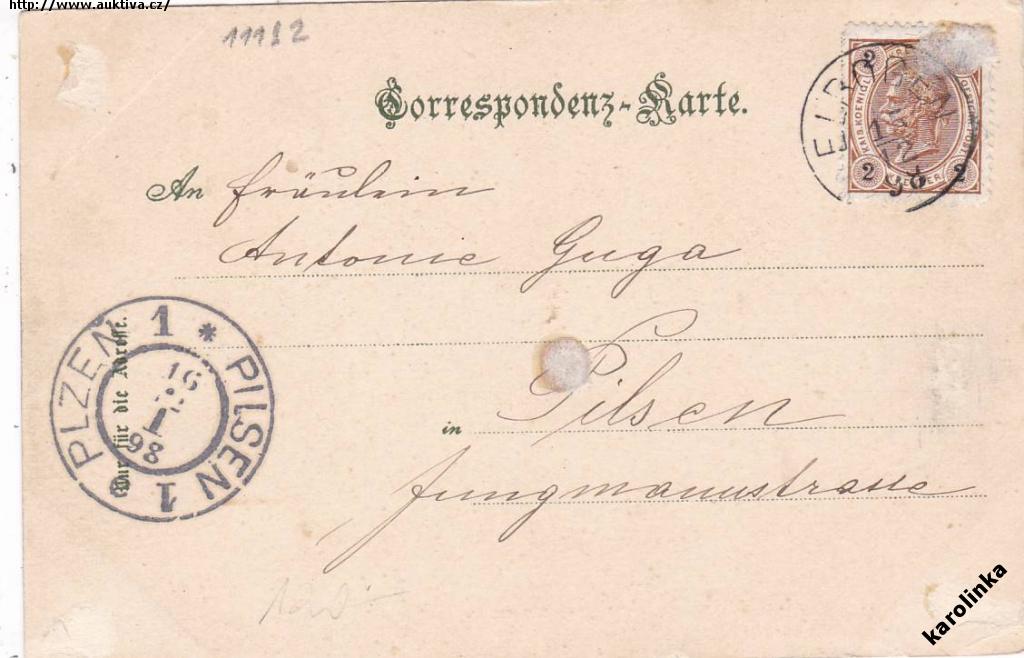 http://www.auktiva.cz/
11182
Correspondenz-Karte.
ELBOGEN
KAIS. KOENIGL. OESTERR. POST
2 2
2 KREUZER 2
An Fräulein
Antonie Guga
PLZEŇ 1 * PILSEN 1
16
98
Nur für die Adresse.
in Pilsen
Jungmannstrasse
karolinka